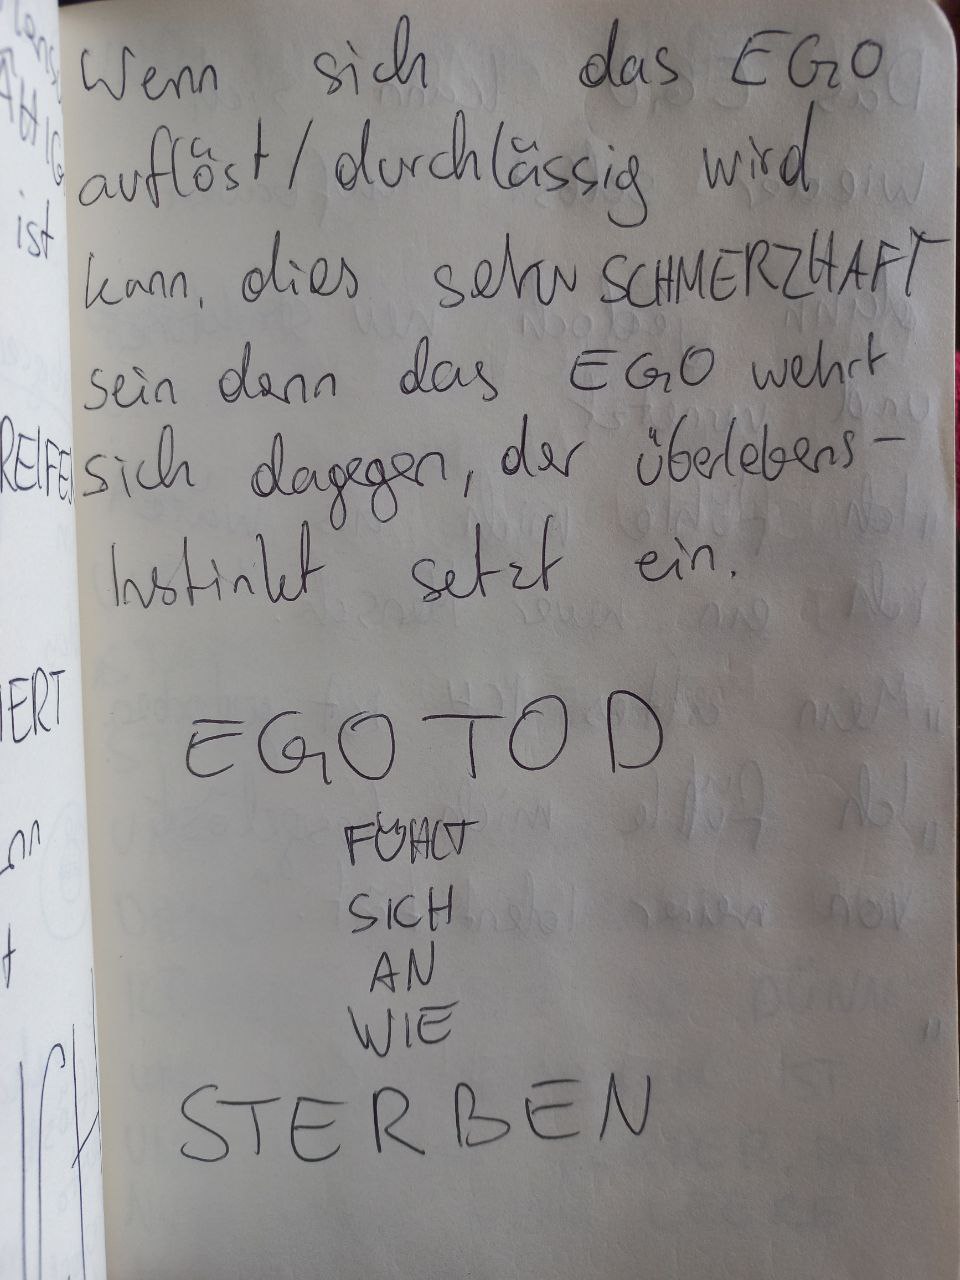 Wenn sich das EGO
auflöst/durchlässig wird
kann, dies sehr SCHMERZHAFT
sein denn das EGO wehrt
sich dagegen, der überlebens-
Instinkt setzt ein.
EGO TOD
FÜHLT
SICH
AN
WIE
STERBEN
ist